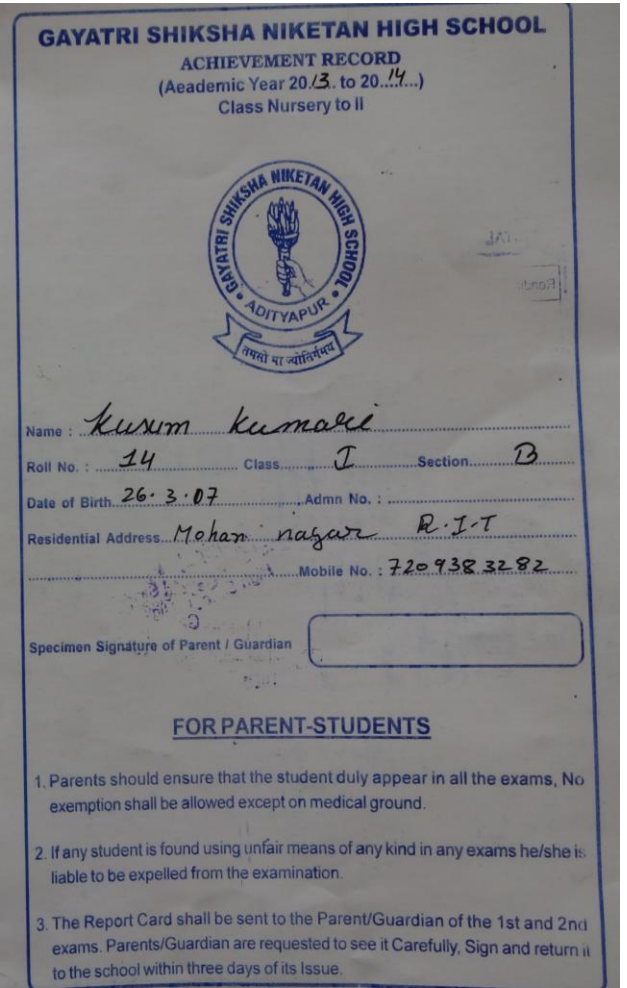 GAYATRI SHIKSHA NIKETAN HIGH SCHOOL
ACHIEVEMENT RECORD
(Aeademic Year 20.13.. to 20...14...)
Class Nursery to II
GAYATRI SHIKSHA NIKETAN HIGH SCHOOL
• ADITYAPUR •
तमसो मा ज्योतिर्गमय
Name : Kusum Kumari
Roll No. : 14 Class I Section B
Date of Birth 26.3.07 Admn No. :
Residential Address Mohan nagar R.I.T
Mobile No. : 7209383282
Specimen Signature of Parent / Guardian
FOR PARENT-STUDENTS
1. Parents should ensure that the student duly appear in all the exams, No
exemption shall be allowed except on medical ground.
2. If any student is found using unfair means of any kind in any exams he/she is
liable to be expelled from the examination.
3. The Report Card shall be sent to the Parent/Guardian of the 1st and 2nd
exams. Parents/Guardian are requested to see it Carefully, Sign and return it
to the school within three days of its Issue.